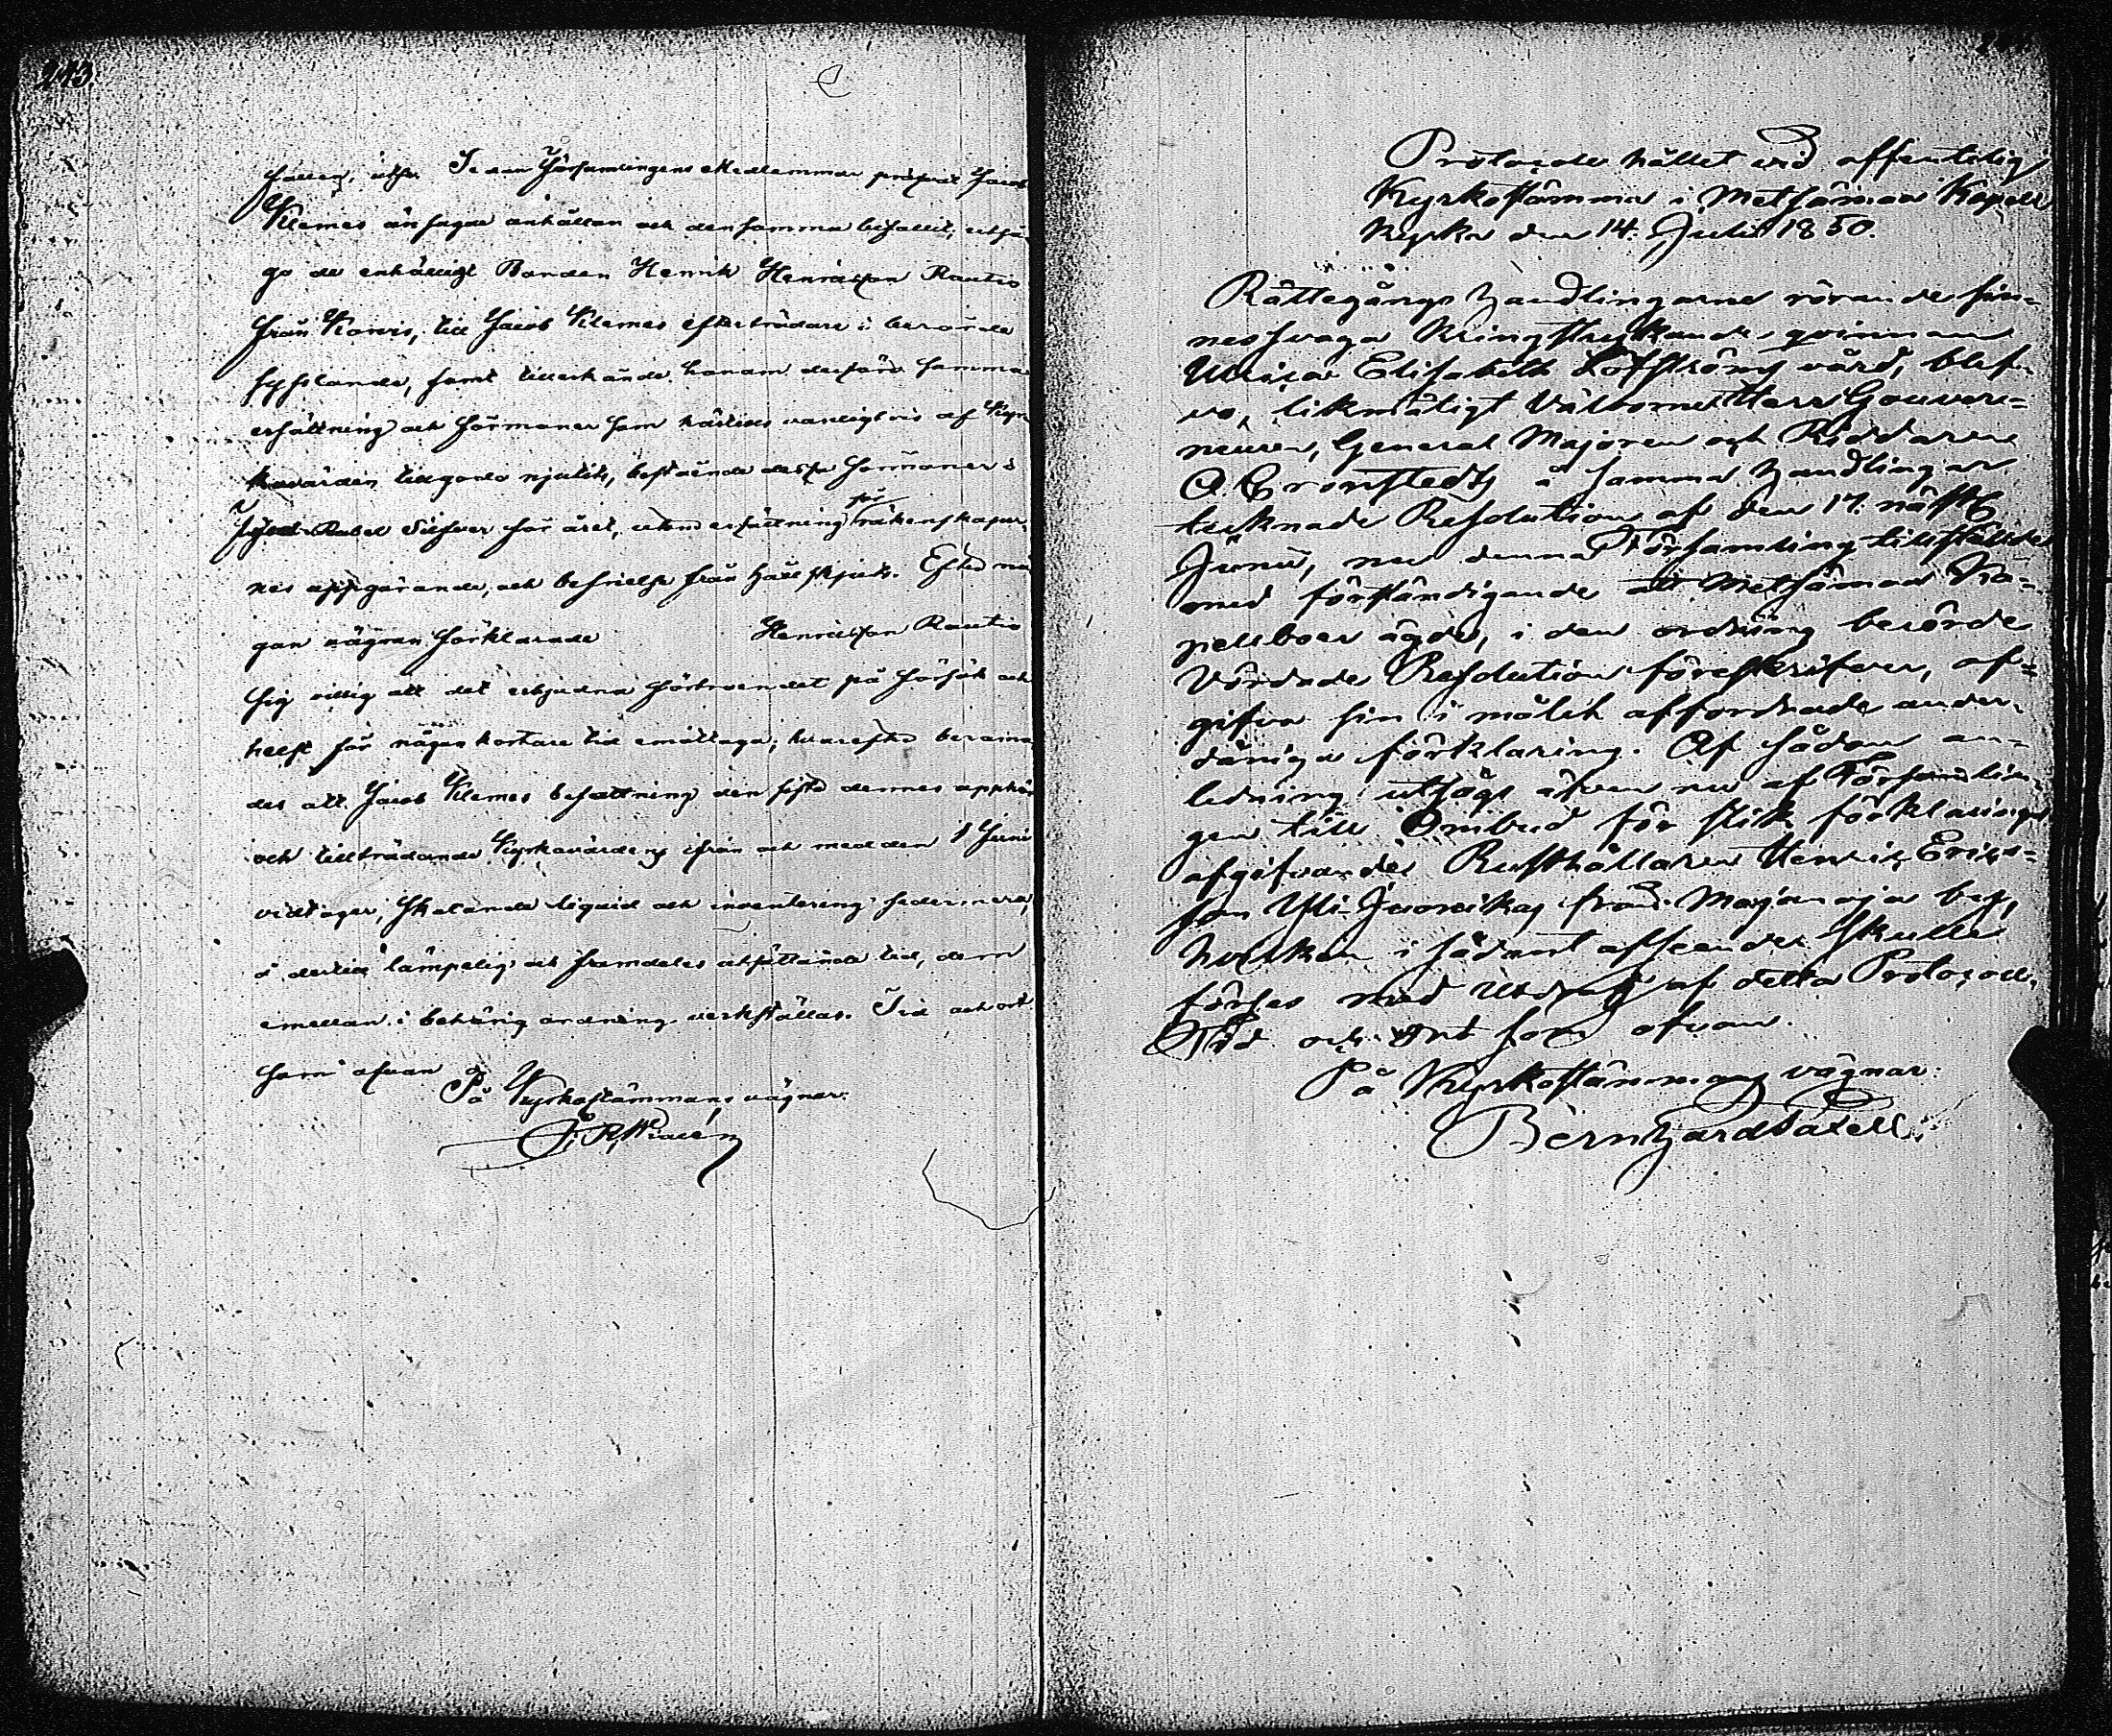 243.
Sedan Församlingens Medlemmar pröfvat Jacob
Klemes ansagde anhållan och densamma bifallit, utså-
go de enhälligt Bonden Henrik Henricsson Rautio
från Kovis, till Jacob Klemes efterträdare i berörde
sysslande, samt tillerkände honom derföre samma
ersättning och förmoner som härtills vanligtvis af Kyr-
kovärden tillgodo njutits, bestående dessa förmoner i
Rubel Silfver för året, utom ersättning för räkenskaper-
nes uppgörande, och befrielse från hållskjuts. Efter nå-
gon vägran förklarade Henricsson Rautio
sig villig att det erbjudna förtroendet på försök och
helst för någon kortare tid emottaga; hvarefter berama-
des att Jacob Klemes befattning den sista dennes upphör
och tillträdande Kyrkovärdens ifrån och med den 1 Juni
vidtager, skolande liquid och inventering sedermera,
å dertill lämpelig och framdeles utsättande tid, dem
emellan i behörig ordning verkställas. Tid och ort
som ofvan
På Kyrkostämmans vägnar:
Protocoll hållet vid offentelig
Kyrkostämma i Metsämaa Kapell
Kyrka den 14. Julii 1850.
Rättegångs Handlingarne rörande sin-
nessvaga Kringstrykande qvinnan
Ulrica Elisabeth Löfströms vård, blef-
vo, likmätigt Välborne Herr Gouver-
neuren, General Majoren och Riddaren
O. Cronstedts å samma Handlingar
tecknade Resolution af den 17. näst
Junii, nu denna Församling tillstälde
med förständigande att Metsämaa Ka-
pellboer ägde, i den ordning berörde
Vördade Resolution föreskrifver, af-
gifva sin i målet affordrade under-
dåniga förklaring. Af sådan an-
ledning utsågs äfven nu af Församlin-
gen till Ombud för slik förklarings
afgifvande Rusthållaren Henrik Eriks-
son Yli-Juonikas från Majanoja by,
hvilken i sådant afseende skulle
förses med Utdrag af detta Protocoll.
Tid och Ort som ofvan.
På Kyrkostämmans vägnar:
Bernhard Patell